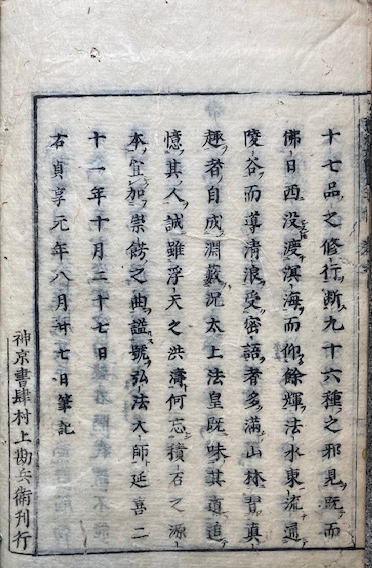 十七品之修行斷九十六種之邪見既而
佛日西没渡溟海而仰餘輝法水東流通
陵谷而導清浪受密語者多滿山林習真
趣者自成淵藪況太上法皇既味其道追
憶其人誠雖浮天之洪濤何忘積石之源
本宜加崇餝之典謚號弘法大師延喜二
十一年十月二十七日
右貞享元年八月廿七日筆記
神京書肆村上勘兵衛刊行